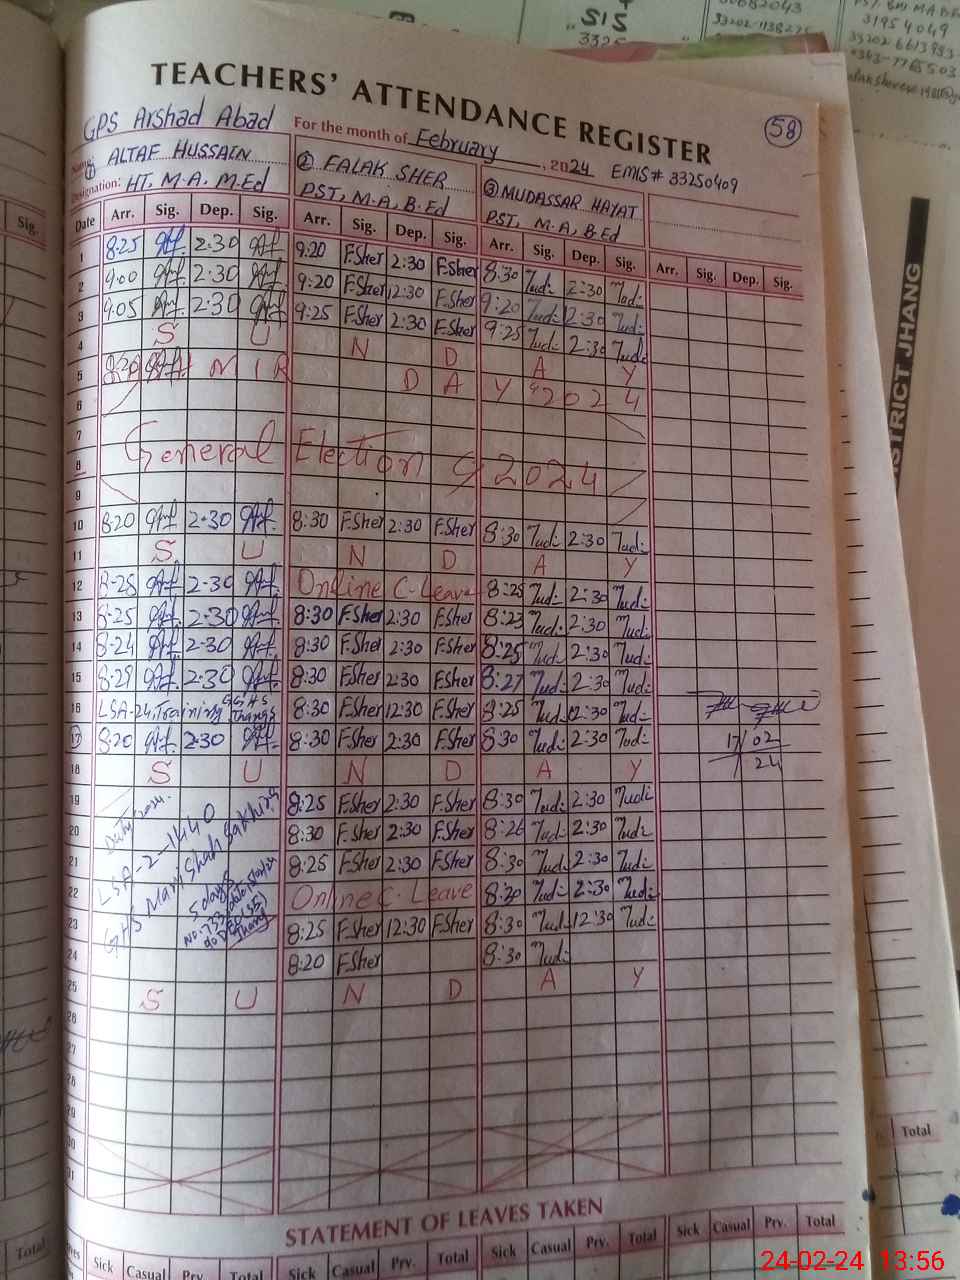 SIS
33202-1138225
31954049
TEACHERS' ATTENDANCE REGISTER
58
GPS Arshad Abad
For the month of February, 2024 EMIS# 33250409
Name: ① ALTAF HUSSAIN ② FALAK SHER ③ MUDASSAR HAYAT
Designation: HT, M.A, M.Ed PST, M.A, B.Ed PST, M.A, B.Ed
Sig. Date Arr. Sig. Dep. Sig. Arr. Sig. Dep. Sig. Arr. Sig. Dep. Sig. Arr. Sig. Dep. Sig.
1 8-25 2-30 9:20 F.Sher 2:30 F.Sher 8:30 Mudi 2:30 Mudi
2 9.00 2-30 9:20 F.Sher 12:30 F.Sher 9:20 Mudi 12:30 Mudi
3 9.05 2-30 9:25 F.Sher 2:30 F.Sher 9:25 Mudi 2:30 Mudi
4 S U N D A Y
5 KASHMIR DAY 2024
6
7
8 General Election 2024
9
10 8-20 2-30 8:30 F.Sher 2:30 F.Sher 8:30 Mudi 2:30 Mudi
11 S U N D A Y
12 8-25 2-30 Online C-Leave 8:25 Mudi 2:30 Mudi
13 8-25 2-30 8:30 F.Sher 2:30 F.Sher 8:23 Mudi 2:30 Mudi
14 8-24 2-30 8:30 F.Sher 2:30 F.Sher 8:25 Mudi 2:30 Mudi
15 8-29 2-30 8:30 F.Sher 2:30 F.Sher 8:27 Mudi 2:30 Mudi
16 LSA-24, Training GGHS Jhang 8:30 F.Sher 12:30 F.Sher 8:25 Mudi 12:30 Mudi
17 8-20 2-30 8:30 F.Sher 2:30 F.Sher 8:30 Mudi 2:30 Mudi 17/02
24
18 S U N D A Y
19 Duty 2024. 8:25 F.Sher 2:30 F.Sher 8:30 Mudi 2:30 Mudi
20 LSA-2-1440 8:30 F.Sher 2:30 F.Sher 8:26 Mudi 2:30 Mudi
21 GHS Mari Shah Sakhira 8:25 F.Sher 2:30 F.Sher 8:30 Mudi 2:30 Mudi
22 5 days Online C-Leave 8:30 Mudi 2:30 Mudi
23 Jhang 8:25 F.Sher 12:30 F.Sher 8:30 Mudi 12:30 Mudi
24 8:20 F.Sher 8:30 Mudi
25 S U N D A Y
26
27
28
29
30
31
STATEMENT OF LEAVES TAKEN
Total Sick Casual Prv. Total Sick Casual Prv. Total Sick Casual Prv. Total Sick Casual Prv. Total
DISTRICT JHANG
Total
24-02-24 13:56